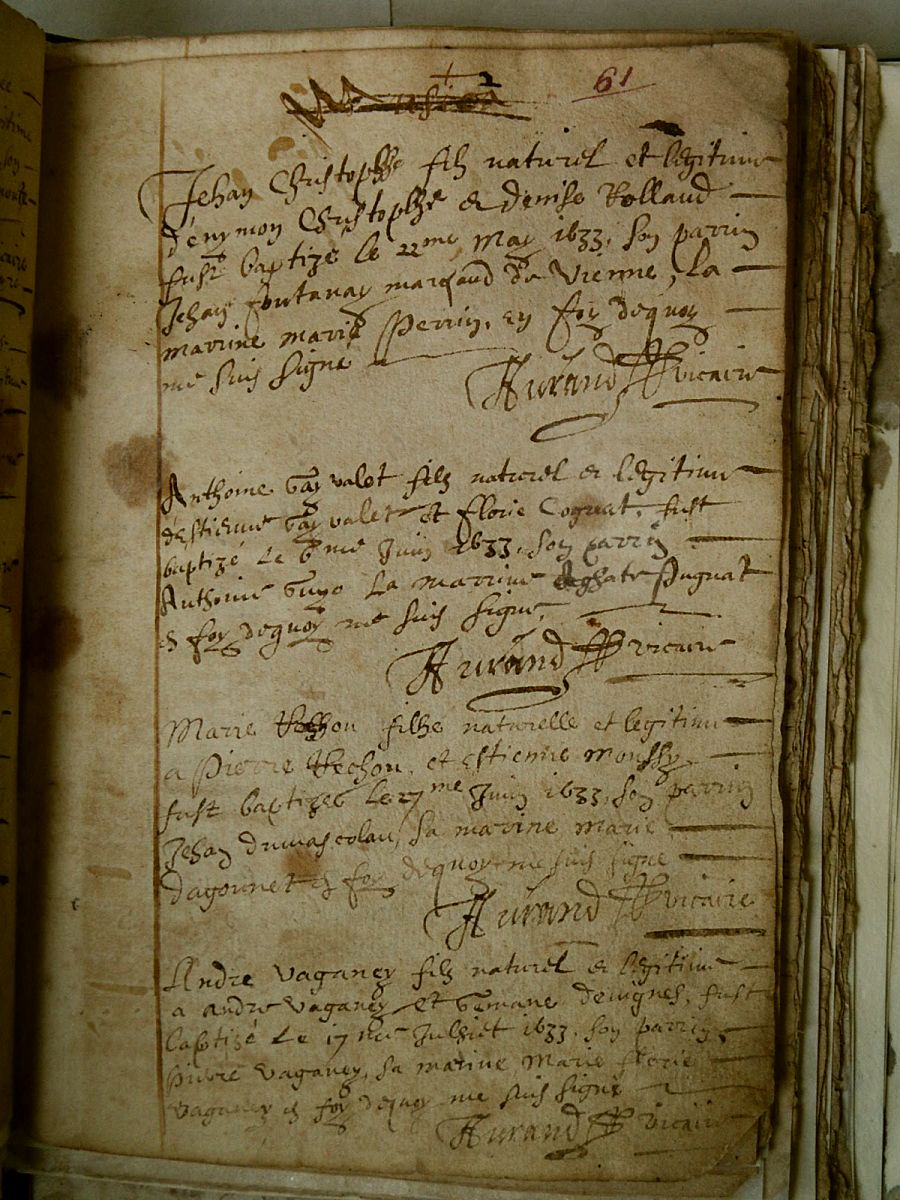 2
61
Jehan Christophle filz naturel et legitime
d'enymon Christophle & denise Rolland
fust baptizé le 22me May 1633, son parrin
Jehan fontanay marchand de Vienne, La
marrine marie Perrin, en foy dequoy
me suis signé
Hurand vicaire
Anthoine Gayvalet filz naturel & legitime
d'Estienne Gayvalet et florie Cognat, fust
baptizé Le 6me Juin 1633, son parrin
Anthoine Guyo La marrine Pugnat
en foy dequoy me suis signé
Hurand vicaire
Marie filhe naturelle et legitime
a Pierre et Estienne moussy
fust baptizée le 27me Juin 1633, son parrin
Jehan sa marine marie
dagonnet en foy dequoy me suis signé
Hurand vicaire
Andre Vaganey filz naturel & legitime
a andre Vaganey et Gemane devignes, fust
baptizé Le 17me Julhiet 1633, son parrin
pierre vaganey, sa marine Marie florie
vaganey en foy dequoy me suis signé
Hurand vicaire